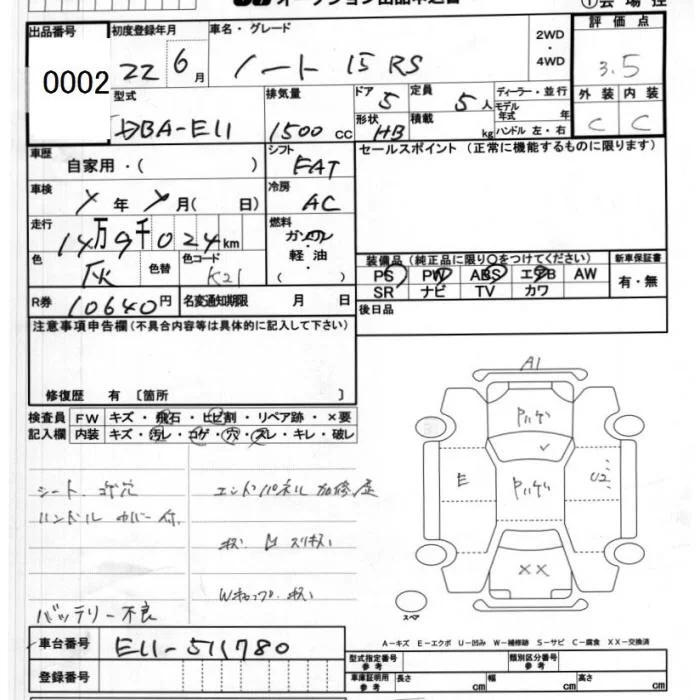 出品番号 初度登録年月 車名・グレード 2WD・4WD 評価点
0002 22 6月 ノート 15 RS 3.5
型式 排気量 ドア 5 定員 5人 ディーラー・並行 外装 内装
DBA-E11 1500cc 形状 HB 積載 kg モデル年式 年 ハンドル 左・右 C C
車歴 シフト セールスポイント(正常に機能するものに限ります)
自家用・( ) FAT
車検 冷房
年 月( 日) AC
走行 燃料
14万9千024km ガソリン
色 灰 色替 色コード K21 軽・油 ( )
装備品(純正品に限り○をつけてください) 新車保証書
PS PW ABS エアB AW 有・無
SR ナビ TV カワ
R券 10640円 名変通知期限 月 日 後日品
注意事項申告欄(不具合内容等は具体的に記入して下さい)
修復歴 有 [箇所 ]
検査員 FW キズ・飛石・ヒビ割・リペア跡・×要
記入欄 内装 キズ・汚レ・コゲ・穴・スレ・キレ・破レ
A1
E U2
XX
スペア
シート コゲ穴 エンドパネル 加修
ハンドル カバー付
バッテリー不良
車台番号 E11-511780
登録番号
A-キズ E-エクボ U-凹み W-補修跡 S-サビ C-腐食 XX-交換済
型式指定番号 参考 類別区分番号 参考
車庫証明用 参考 長さ cm 幅 cm 高さ cm